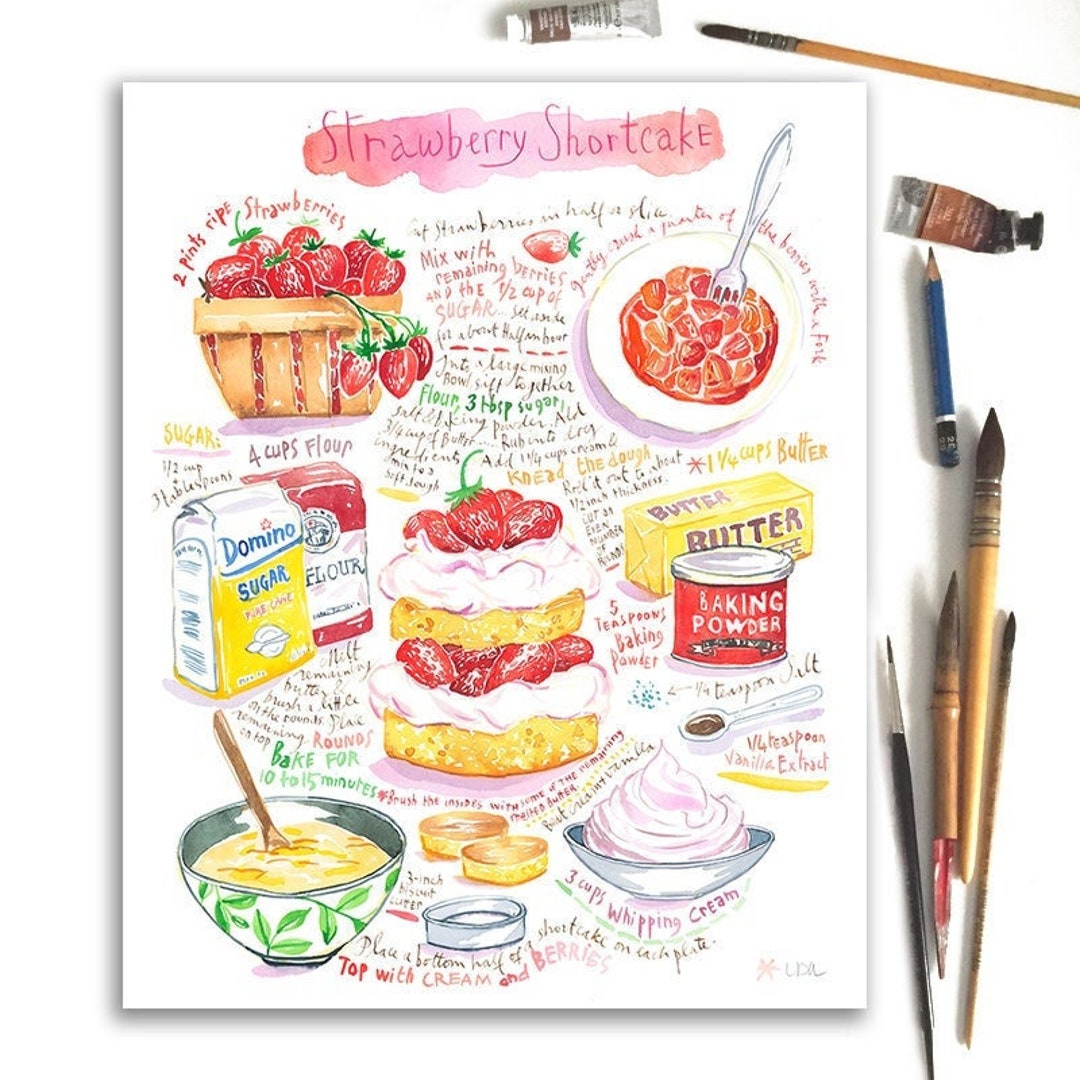 Strawberry Shortcake
2 pints ripe Strawberries
Cut Strawberries in half or slice.
Gently crush a quarter of the berries with a Fork
Mix with
remaining berries
AND the 1/2 cup of
SUGAR... Set aside
for about Half an hour
Into a large mixing
Bowl sift together
Flour, 3 tbsp sugar,
salt & baking powder. Add
3/4 cup of Butter.... Rub into dry
ingredients. Add 1 1/4 cups cream &
mix to a
soft dough
Knead the dough
Roll it out to about
1/2 inch thickness.
CUT AN
EVEN
NUMBER
OF
ROUNDS
SUGAR:
1/2 cup
3 tablespoons
4 cups Flour
*1 1/4 cups Butter
BUTTER
BUTTER
Domino
SUGAR
PURE CANE
FLOUR
BAKING
POWDER
5
TEASPOONS
Baking
Powder
1/4 teaspoon Salt
1/4 teaspoon
Vanilla Extract
Melt
remaining
butter &
brush a little
on the rounds. Place
remaining
on top.
ROUNDS
BAKE FOR
10 to 15 minutes
*Brush the insides with some of the remaining
melted butter
Beat cream & vanilla
3-inch
biscuit
cutter
3 cups Whipping Cream
Place a bottom half of a shortcake on each plate.
Top with CREAM and BERRIES
LIDIA